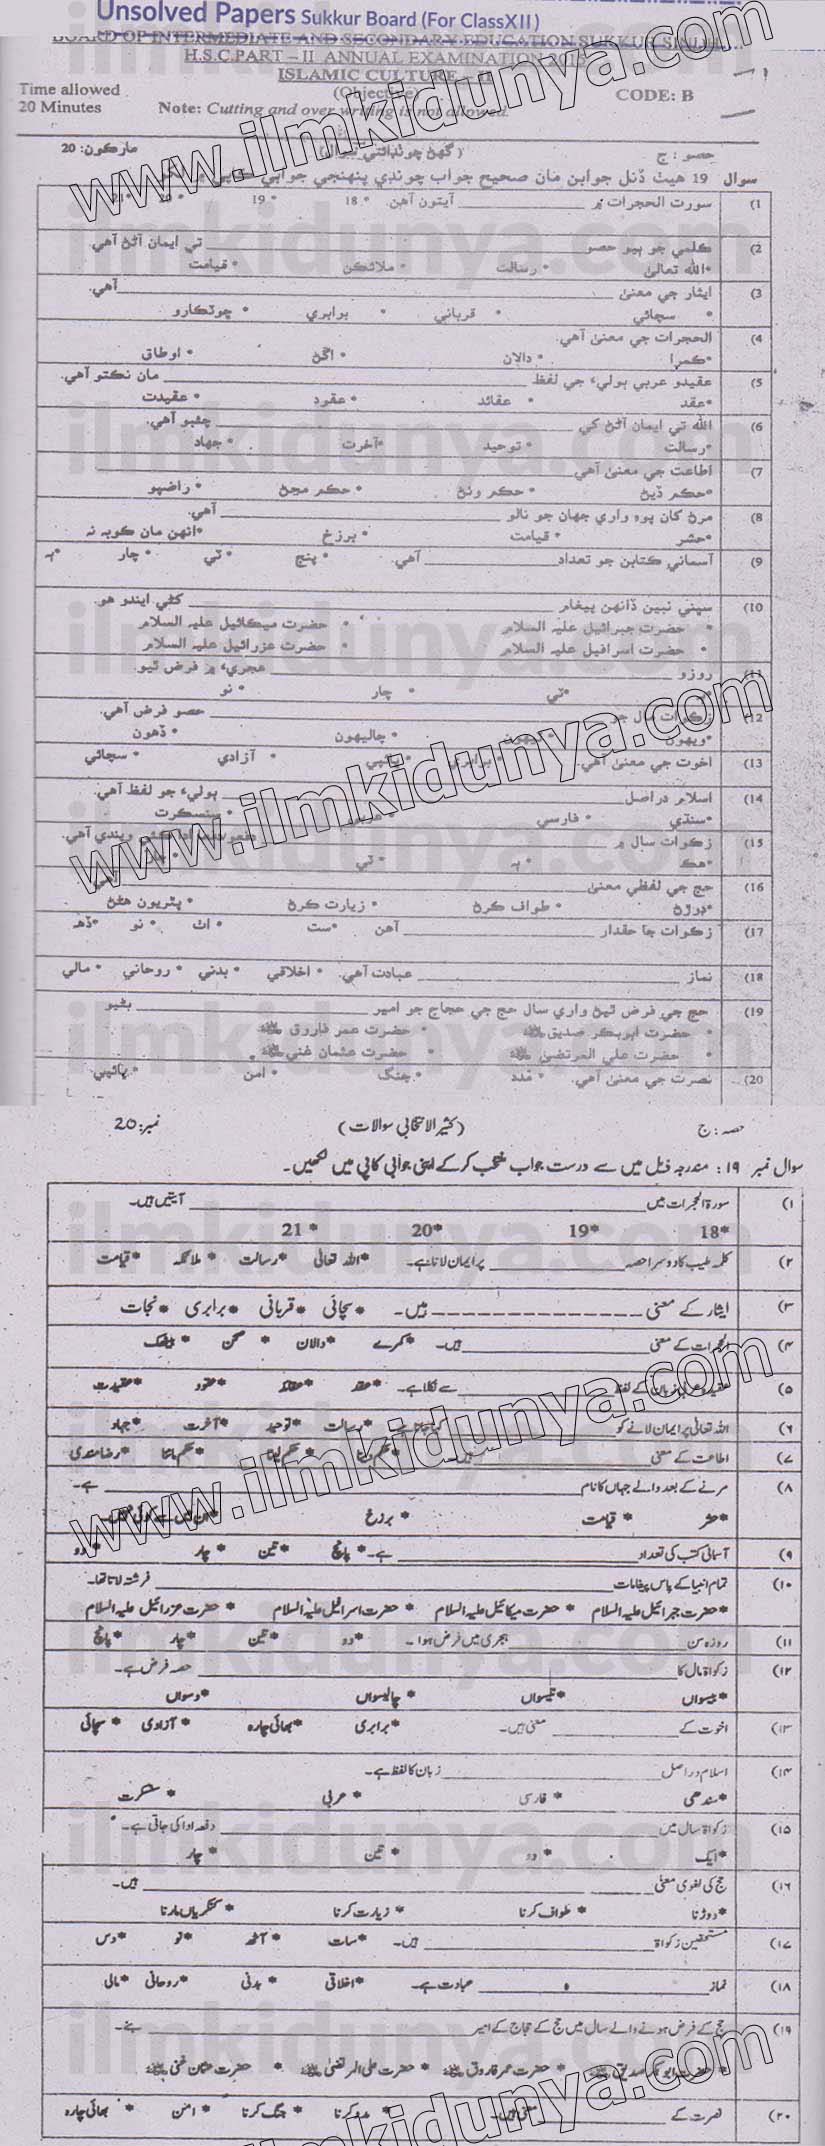 Unsolved Papers Sukkur Board (For ClassXII)
BOARD OF INTERMEDIATE AND SECONDARY EDUCATION SUKKUR SINDH
H.S.C.PART – II ANNUAL EXAMINATION 2015
ISLAMIC CULTURE –
Time allowed (Objective) CODE: B
20 Minutes Note: Cutting and over writing is not allowed.
حصو : ج ( گھڻ چونڊائتي سوال) مارڪون: 20
سوال 19 هيٺ ڏنل جوابن مان صحيح جواب چونڊي پنهنجي جوابي
(1 سورت الحجرات ۾ ______ آيتون آهن. * 18 * 19 * 20 * 21
(2 ڪلمي جو ٻيو حصو ______ تي ايمان آڻڻ آهي.
*الله تعاليٰ * رسالت * ملائڪن * قيامت
(3 ايثار جي معنيٰ ______ آهي.
* سچائي * قرباني * برابري * ڇوٽڪارو
(4 الحجرات جي معنيٰ آهي.
*ڪمرا * دالان * اڱڻ * اوطاق
(5 عقيدو عربي ٻوليءَ جي لفظ ______ مان نڪتو آهي.
*عقد * عقائد * عقود * عقيدت
(6 الله تي ايمان آڻڻ کي ______ چئبو آهي.
*رسالت * توحيد *آخرت * جهاد
(7 اطاعت جي معنيٰ آهي ______
*حڪم ڏيڻ * حڪم وٺڻ * حڪم مڃڻ * راضپو
(8 مرڻ کان پوءِ واري جهان جو نالو ______ آهي.
*حشر * قيامت * برزخ *انهن مان ڪوبه نه
(9 آسماني ڪتابن جو تعداد ______ آهي. * پنج * ٽي * چار *ٻه
(10 سڀني نبين ڏانهن پيغام ______ کڻي ايندو هو.
* حضرت جبرائيل عليہ السلام * حضرت ميڪائيل عليہ السلام
* حضرت اسرافيل عليہ السلام * حضرت عزرائيل عليہ السلام
(11 روزو ______ هجريءَ ۾ فرض ٿيو.
*ٽي * چار * نو
(12 زڪوات مال جو ______ حصو فرض آهي.
*ويهون * چاليهون * ڏهون
(13 اخوت جي معنيٰ آهي. * برابري * ڀائپي * آزادي * سچائي
(14 اسلام دراصل ______ ٻوليءَ جو لفظ آهي.
*سنڌي * فارسي * سنسڪرت
(15 زڪوات سال ۾ ______ ويندي آهي.
*هڪ * ٻه * ٽي
(16 حج جي لفظي معنيٰ ______
*ڊوڙڻ * طواف ڪرڻ * زيارت ڪرڻ * پٿريون هڻڻ
(17 زڪوات جا حقدار ______ آهن *ست * اٺ * نو *ڏهه
(18 نماز ______ عبادت آهي. * اخلاقي * بدني * روحاني * مالي
(19 حج جي فرض ٿيڻ واري سال حج جي حجاج جو امير ______ بڻيو
* حضرت ابوبڪر صديق * حضرت عمر فاروق
* حضرت علي المرتضيٰ * حضرت عثمان غني
(20 نصرت جي معنيٰ آهي. * مدد * جنگ * امن * ڀائپي
حصہ : ج (کثیر الانتخابی سوالات) نمبر: 20
سوال نمبر ۱۹: مندرجہ ذیل میں سے درست جواب منتخب کر کے اپنی جوابی کاپی میں لکھیں۔
(۱ سورۃ الحجرات میں ______ آیتیں ہیں۔
*18 *19 *20 * 21
(۲ کلمہ طیب کا دوسرا حصہ ______ پر ایمان لانا ہے۔ *اللہ تعالیٰ *رسالت * ملائکہ * قیامت
(۳ ایثار کے معنی ______ ہیں۔ * سچائی * قربانی * برابری * نجات
(۴ الحجرات کے معنی ______ ہیں۔ *کمرے *دالان * صحن * بیٹھک
(۵ عقیدہ عربی زبان کے لفظ ______ سے نکلا ہے۔ * عقد * عقائد * عقود * عقیدت
(۶ اللہ تعالیٰ پر ایمان لانے کو ______ * رسالت * توحید * آخرت * جہاد
(۷ اطاعت کے معنی ______ * حکم ماننا * رضامندی
(۸ مرنے کے بعد والے جہاں کا نام ______ ہے۔
*حشر * قیامت * برزخ
(۹ آسمانی کتب کی تعداد ______ ہے۔ * پانچ * تین * چار * دو
(۱۰ تمام انبیا کے پاس پیغامات ______ فرشتہ لاتا تھا۔
* حضرت جبرائیل علیہ السلام * حضرت میکائیل علیہ السلام * حضرت اسرافیل علیہ السلام * حضرت عزرائیل علیہ السلام
(۱۱ روزہ سن ______ ہجری میں فرض ہوا۔ *دو * تین * چار * پانچ
(۱۲ زکواۃ مال کا ______ حصہ فرض ہے۔
*بیسواں *تیسواں * چالیسواں *دسواں
(۱۳ اخوت کے ______ معنی ہیں۔ *برابری *بھائی چارہ * آزادی * سچائی
(۱۴ اسلام دراصل ______ زبان کا لفظ ہے۔
*سندھی * فارسی * عربی * سنسکرت
(۱۵ زکواۃ سال میں ______ دفعہ ادا کی جاتی ہے۔
*ایک * دو * تین * چار
(۱۶ حج کی لغوی معنی ______ ہیں۔
*دوڑنا * طواف کرنا * زیارت کرنا * کنکریاں مارنا
(۱۷ مستحقین زکواۃ ______ ہیں۔ *سات * آٹھ * نو *دس
(۱۸ نماز ______ عبادت ہے۔ *اخلاقی * بدنی *روحانی * مالی
(۱۹ حج کے فرض ہونے والے سال میں حج کے حجاج کے امیر ______ بنے۔
* حضرت ابوبکر صدیق * حضرت عمر فاروق * حضرت علی المرتضیٰ * حضرت عثمان غنی
(۲۰ نصرت کے ______ معنی ہیں۔ * مدد کرنا * جنگ کرنا * امن * بھائی چارہ
www.ilmkidunya.com